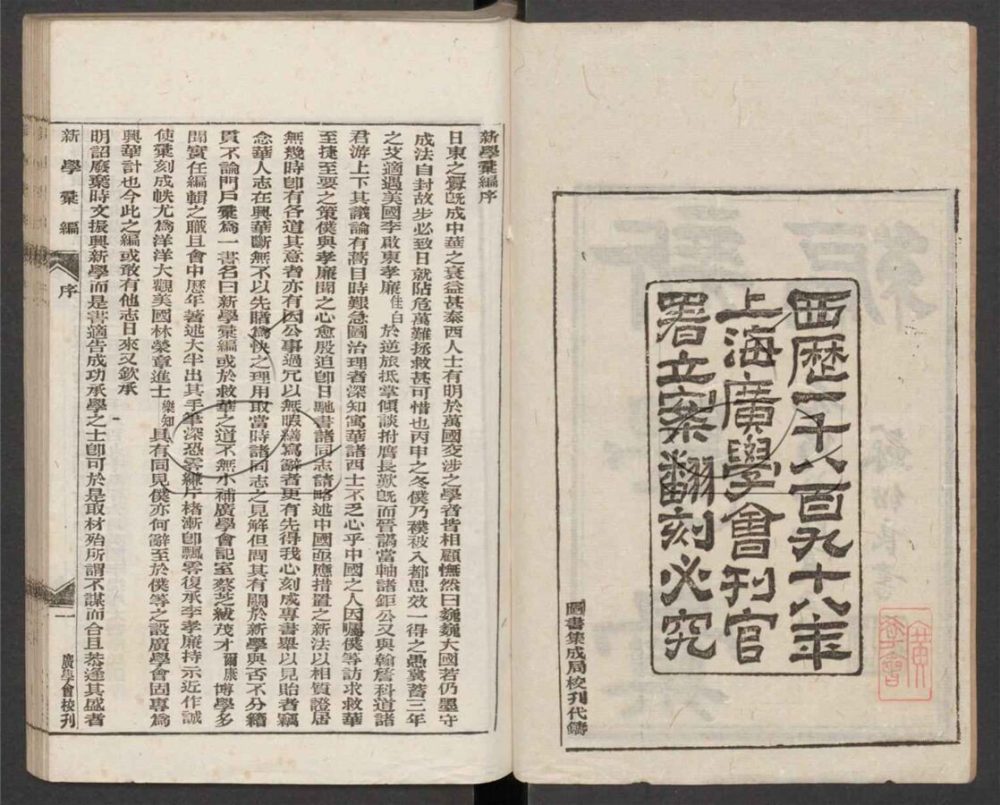 西歷一千八百九十八年
上海廣學會刊官
署立案翻刻必究
圖書集成局校刊代鑄
新學彙編序
日東之釁旣成中華之衰益甚泰西人士有明於萬國交涉之學者皆相顧憮然曰巍巍大國若仍墨守
成法自封故步必致日就阽危萬難拯救甚可惜也丙申之冬僕乃襆被入都思效一得之愚冀蓄三年
之艾適遇美國李啟東孝廉佳白於逆旅抵掌傾談拊膺長歎旣而晉謁當軸諸鉅公又與翰詹科道諸
君游上下其議論有蒿目時艱急圖治理者深知寓華諸西士不乏心乎中國之人因囑僕等訪求救華
至捷至要之策僕與孝廉聞之心愈殷迫卽日馳書諸同志請略述中國亟應措置之新法以相質證居
無幾時卽有各道其意者亦有因公事過冗以無暇繕寫辭者更有先得我心刻成專書舉以見貽者竊
念華人志在興華斷無不以先睹爲快之理用取當時諸同志之見解但問其有關於新學與否不分籍
貫不論門戶彙爲一書名曰新學彙編或於救華之道不無小補廣學會記室蔡芝紱茂才爾康博學多
聞實任編輯之職且會中歷年著述大半出其手筆深恐零縑片楮漸卽飄零復承李孝廉持示近作誠
使彙刻成帙尤爲洋洋大觀美國林榮章進士樂知具有同見僕亦何辭至於僕等之設廣學會固專爲
興華計也今此之編或敢有他志日來又欽承
明詔廢棄時文振興新學而是書適告成功承學之士卽可於是取材殆所謂不謀而合且恭逢其盛者
新學彙編 序 一 廣學會校刊